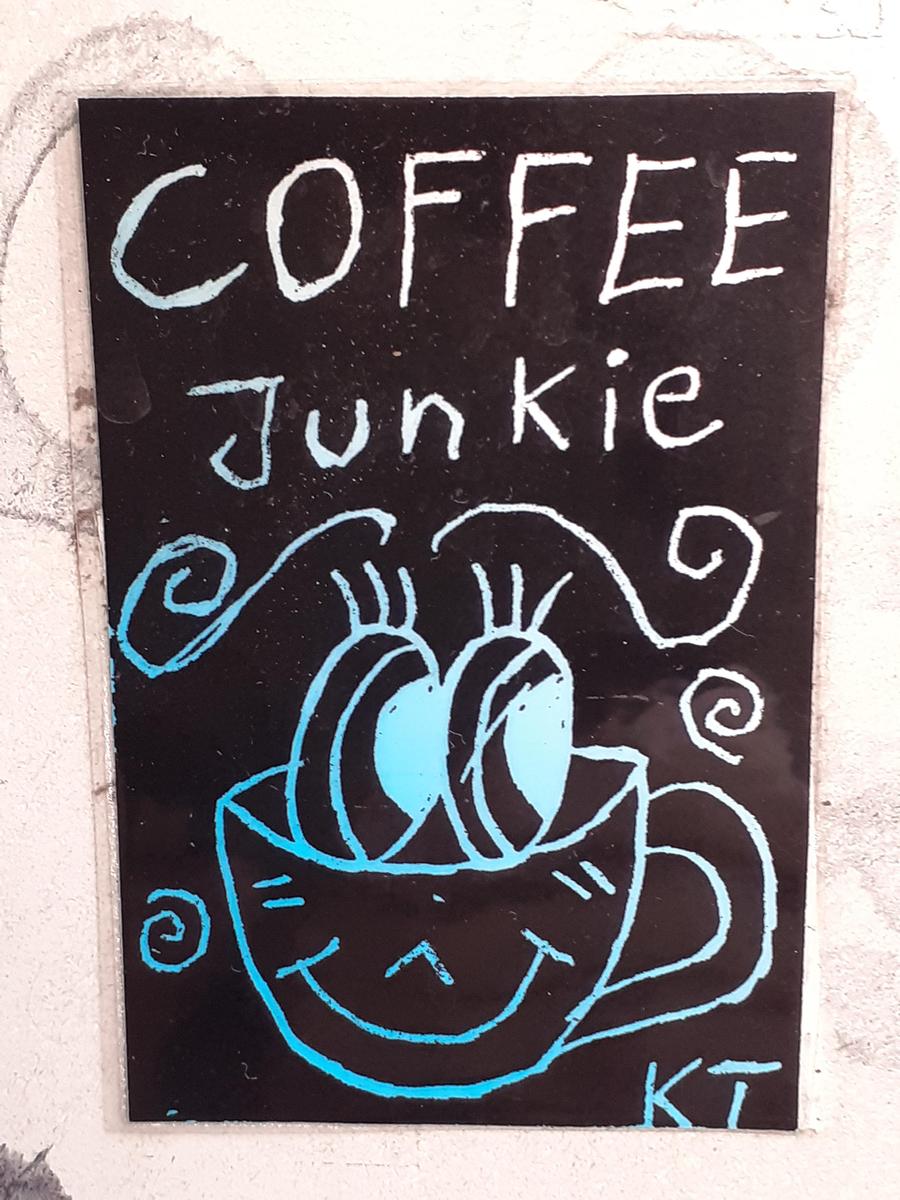 COFFEE
Junkie
KT